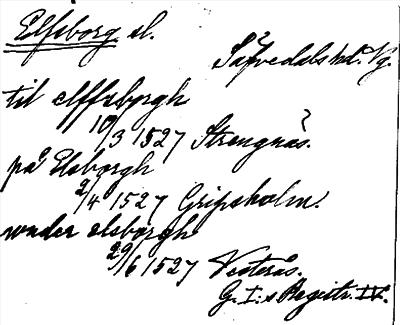 Elfsborg sl.
Säfvedals hd. Vg.
til elffzborgh
10/3 1527 Strengnäs. ?
på Elsborgh
2/4 1527 Gripsholm.
wnder elsborgh
29/6 1527 Vesterås.
G. I:s Registr. IV.